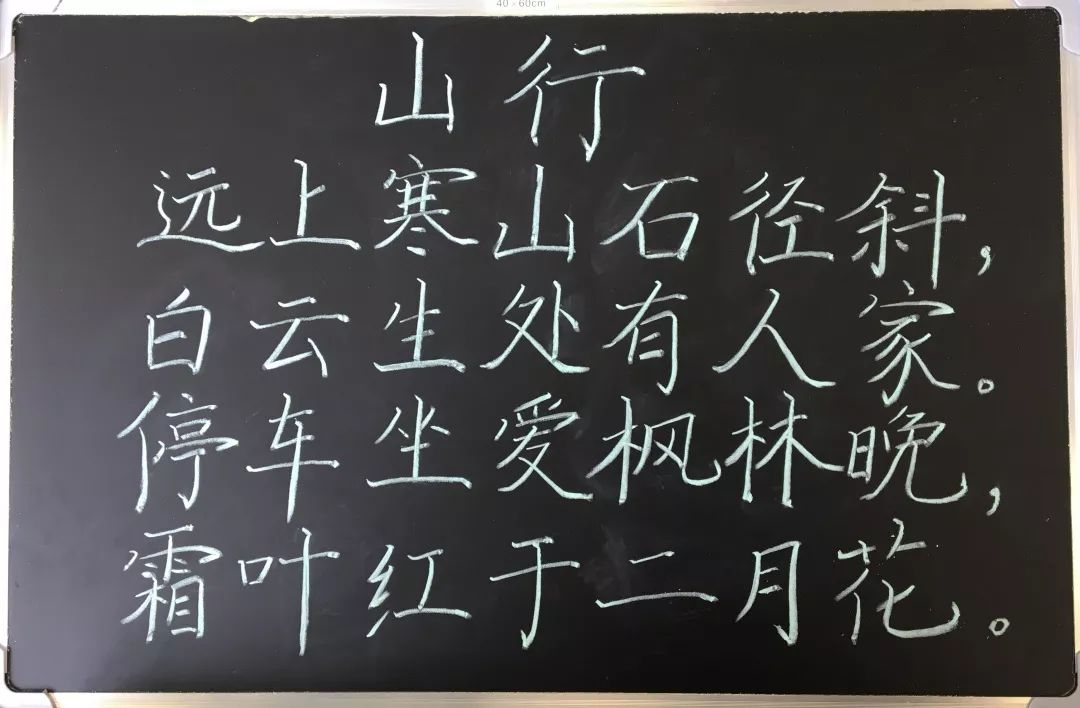 40-60cm
山行
远上寒山石径斜，
白云生处有人家。
停车坐爱枫林晚，
霜叶红于二月花。